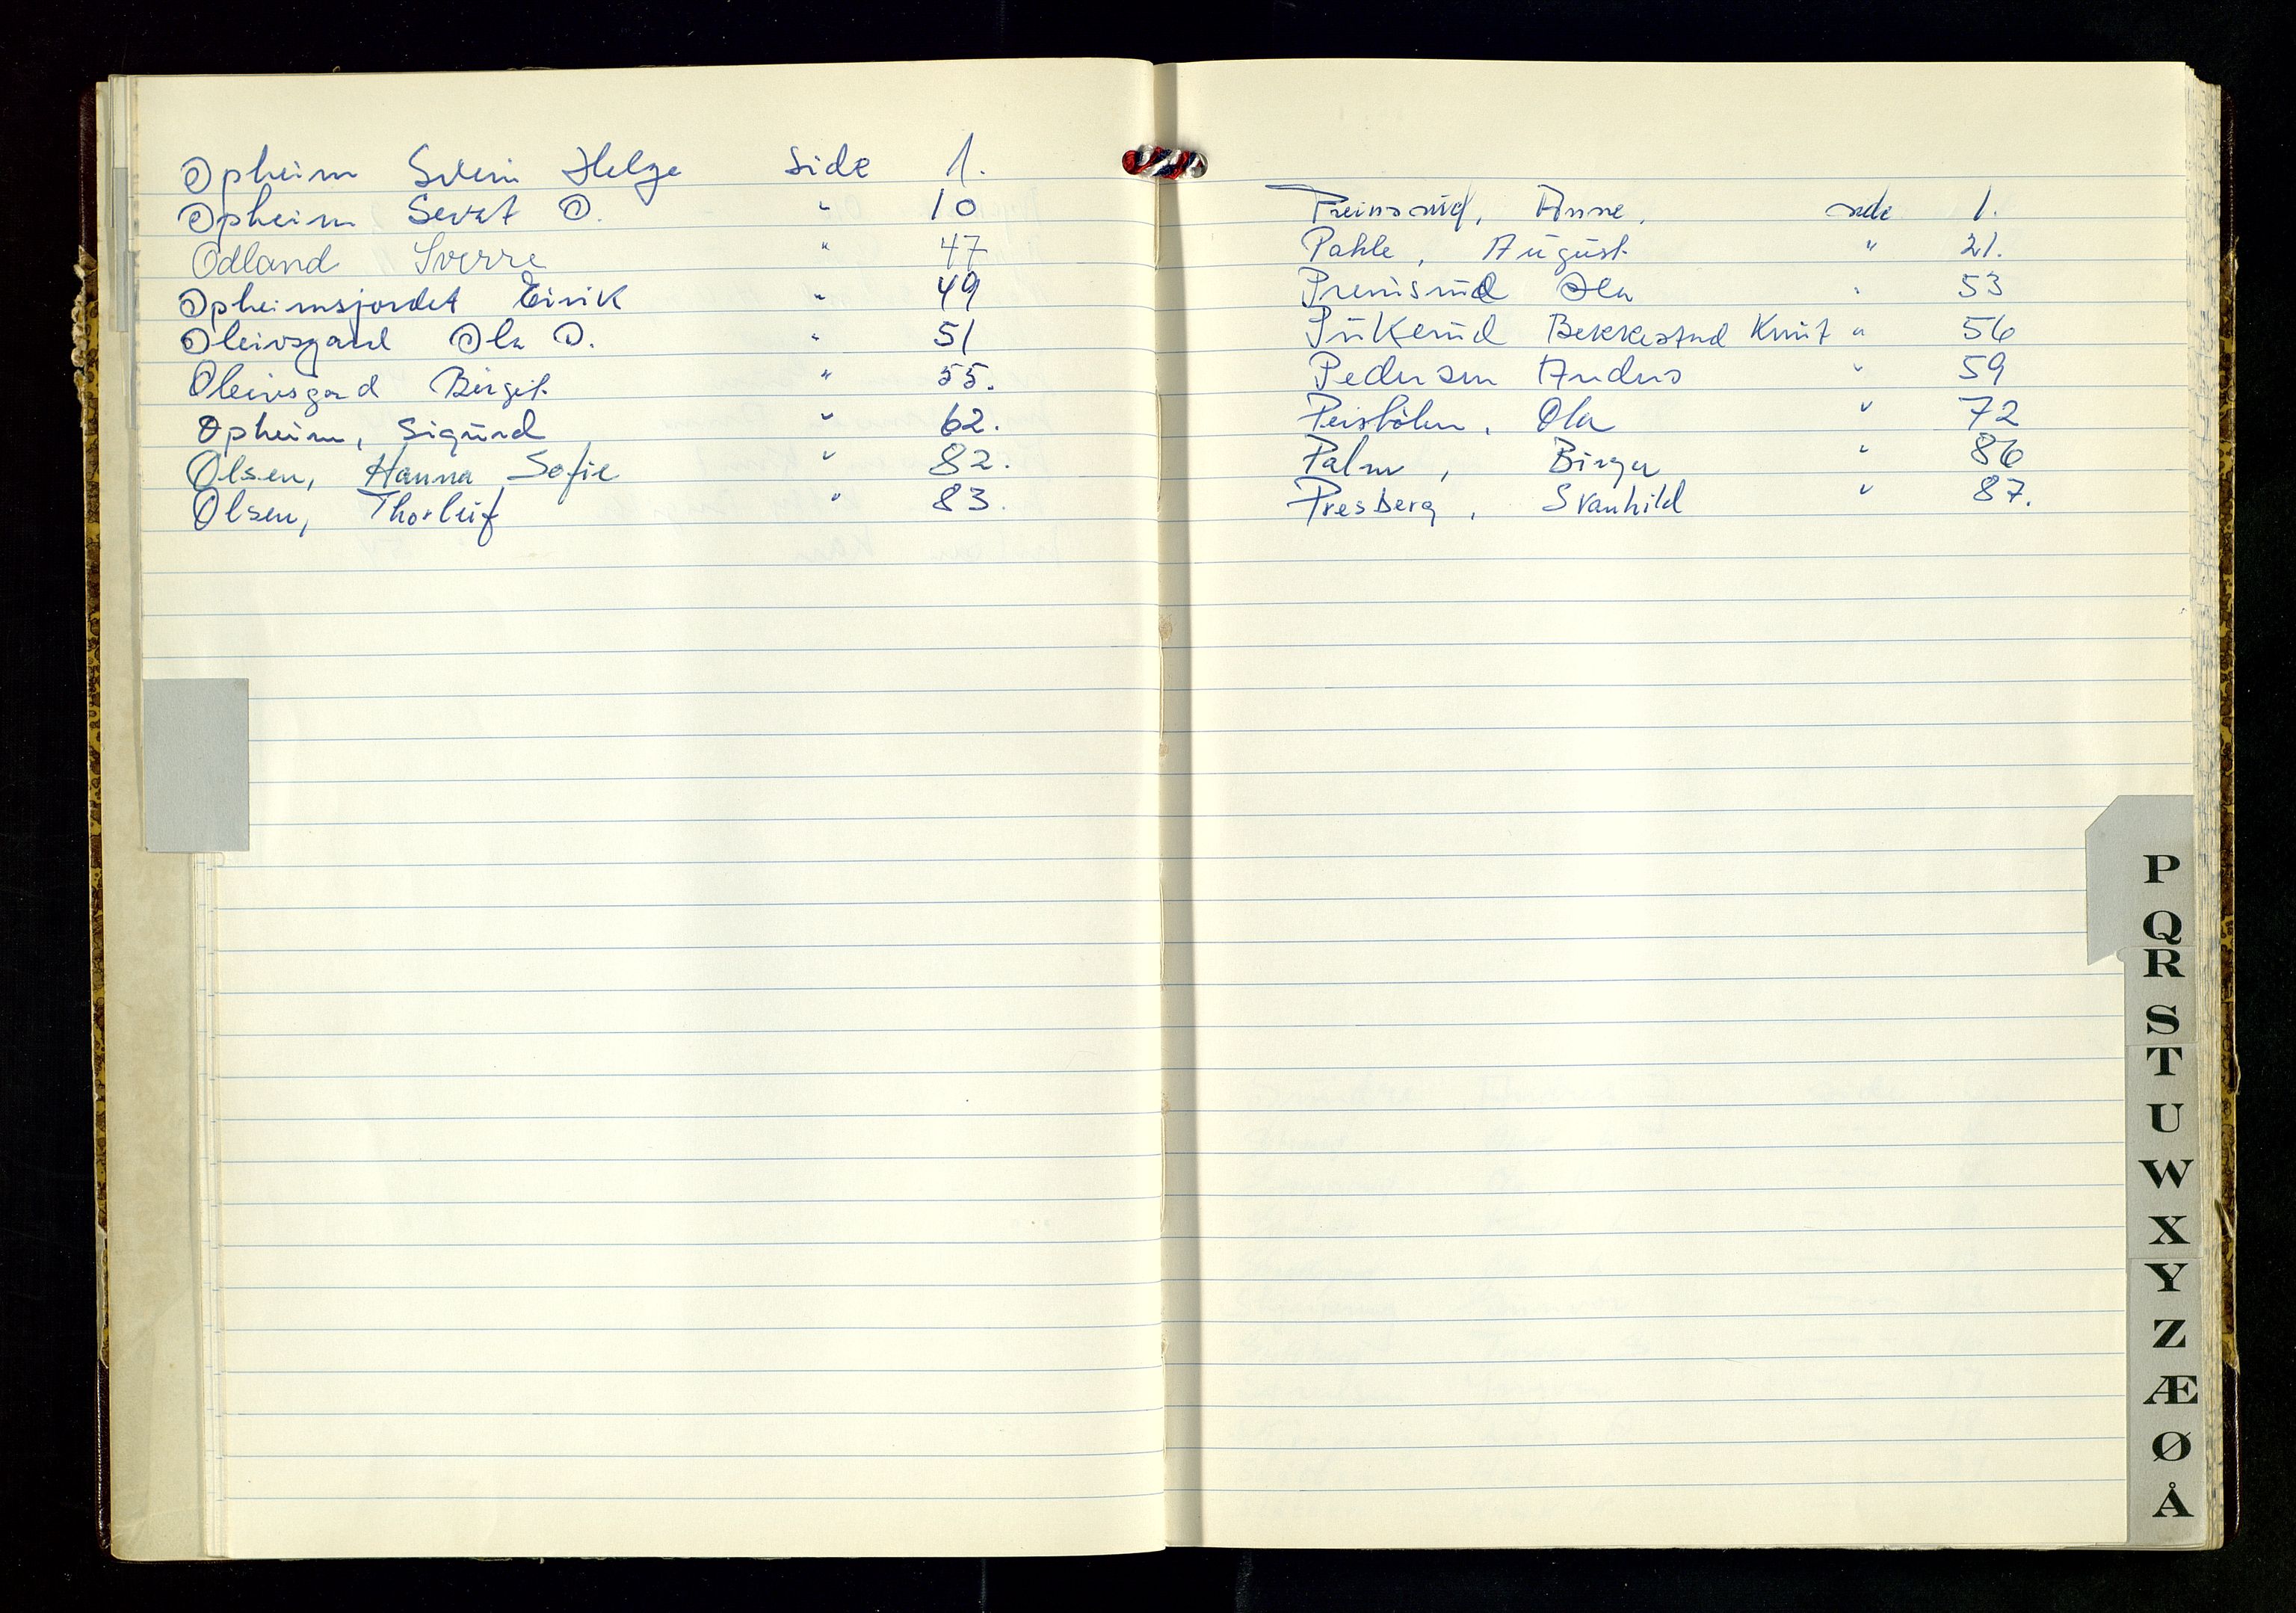 Opheim Svein Helge side 1.
Opheim Sevat O. " 10
Odland Sverre " 47
Opheimsjordet Eirik " 49
Oleivsgard Ola O. " 51
Oleivsgard Birgit " 55.
Opheim, Sigurd " 62.
Olsen, Hanna Sofie " 82.
Olsen, Thorleif " 83.
Anne, side 1.
Pahle, August " 21.
Ola " 53
Pukerud Bekkestad Knut " 56
Pedersen Anders " 59
Ola " 72
Palm, Birger " 86
Presberg, Svanhild " 87.
P
Q
R
S
T
U
W
X
Y
Z
Æ
Ø
Å